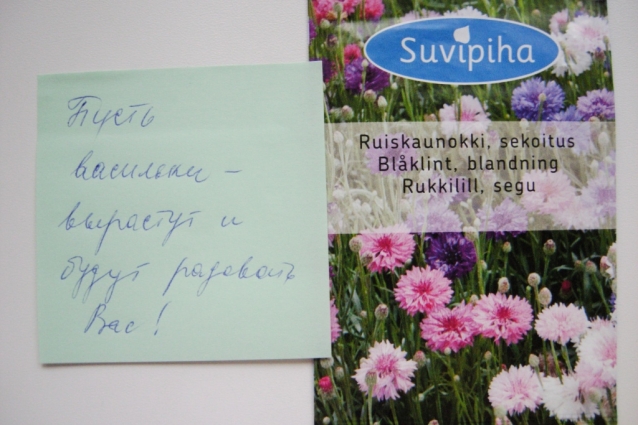 Пусть
васильки –
вырастут и
будут радовать
Вас!
Suvipiha
Ruiskaunokki, sekoitus
Blåklint, blandning
Rukkilill, segu